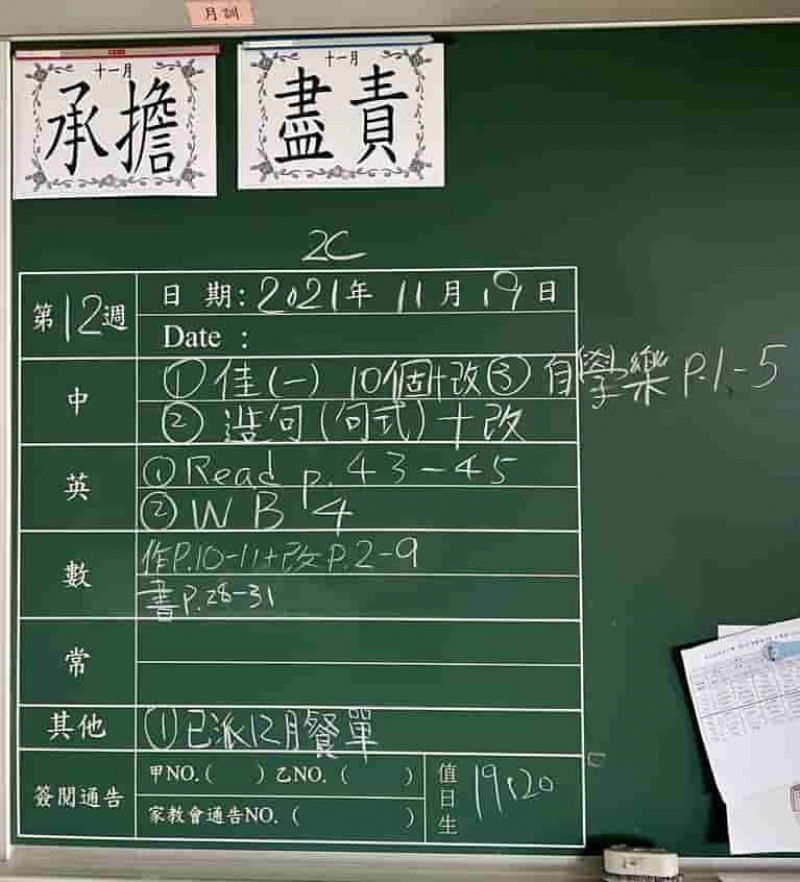 月訓
十一月
承擔
十一月
盡責
2C
第12週
日期:2021年11月19日
Date :
中
① 佳(一) 10個+改 ③ 自學樂 P.1-5
② 造句(句式)+改
英
① Read p.43-45
② WB 4
數
作P.10-11+改P.2-9
書P.28-31
常
其他
①已派12月餐單
簽閱通告
甲NO.( ) 乙NO.( )
家教會通告NO.( )
值日生
19,20